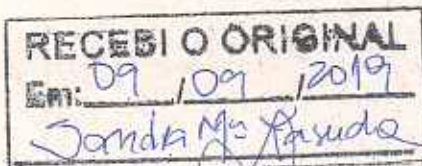 RECEBI O ORIGINAL
Em: 09 / 09 / 2019
Sandra Mª